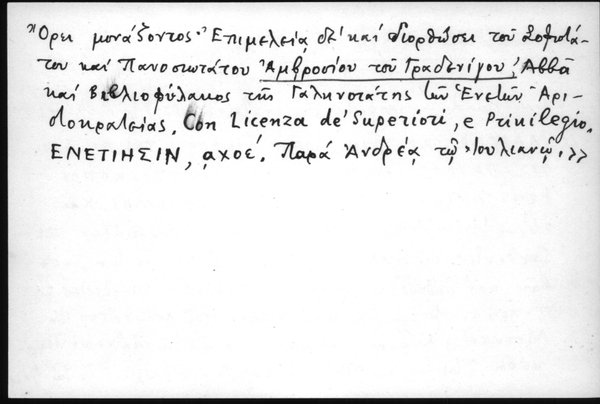 Ὄρει μονάζοντος· Ἐπιμελείᾳ δὲ καὶ διορθώσει τοῦ Σοφωτά-
του καὶ Πανοσιωτάτου Ἀμβροσίου τοῦ Γραδενίγου, Ἀββᾶ
καὶ Βιβλιοφύλακος τῆς Γαληνοτάτης τῶν Ἐνετῶν Ἀρι-
στοκρατείας. Con Licenza de' Superiori, e Privilegio.
ΕΝΕΤΙΗΣΙΝ, αχοέ. Παρὰ Ἀνδρέᾳ τῷ Ἰουλιανῷ.>>